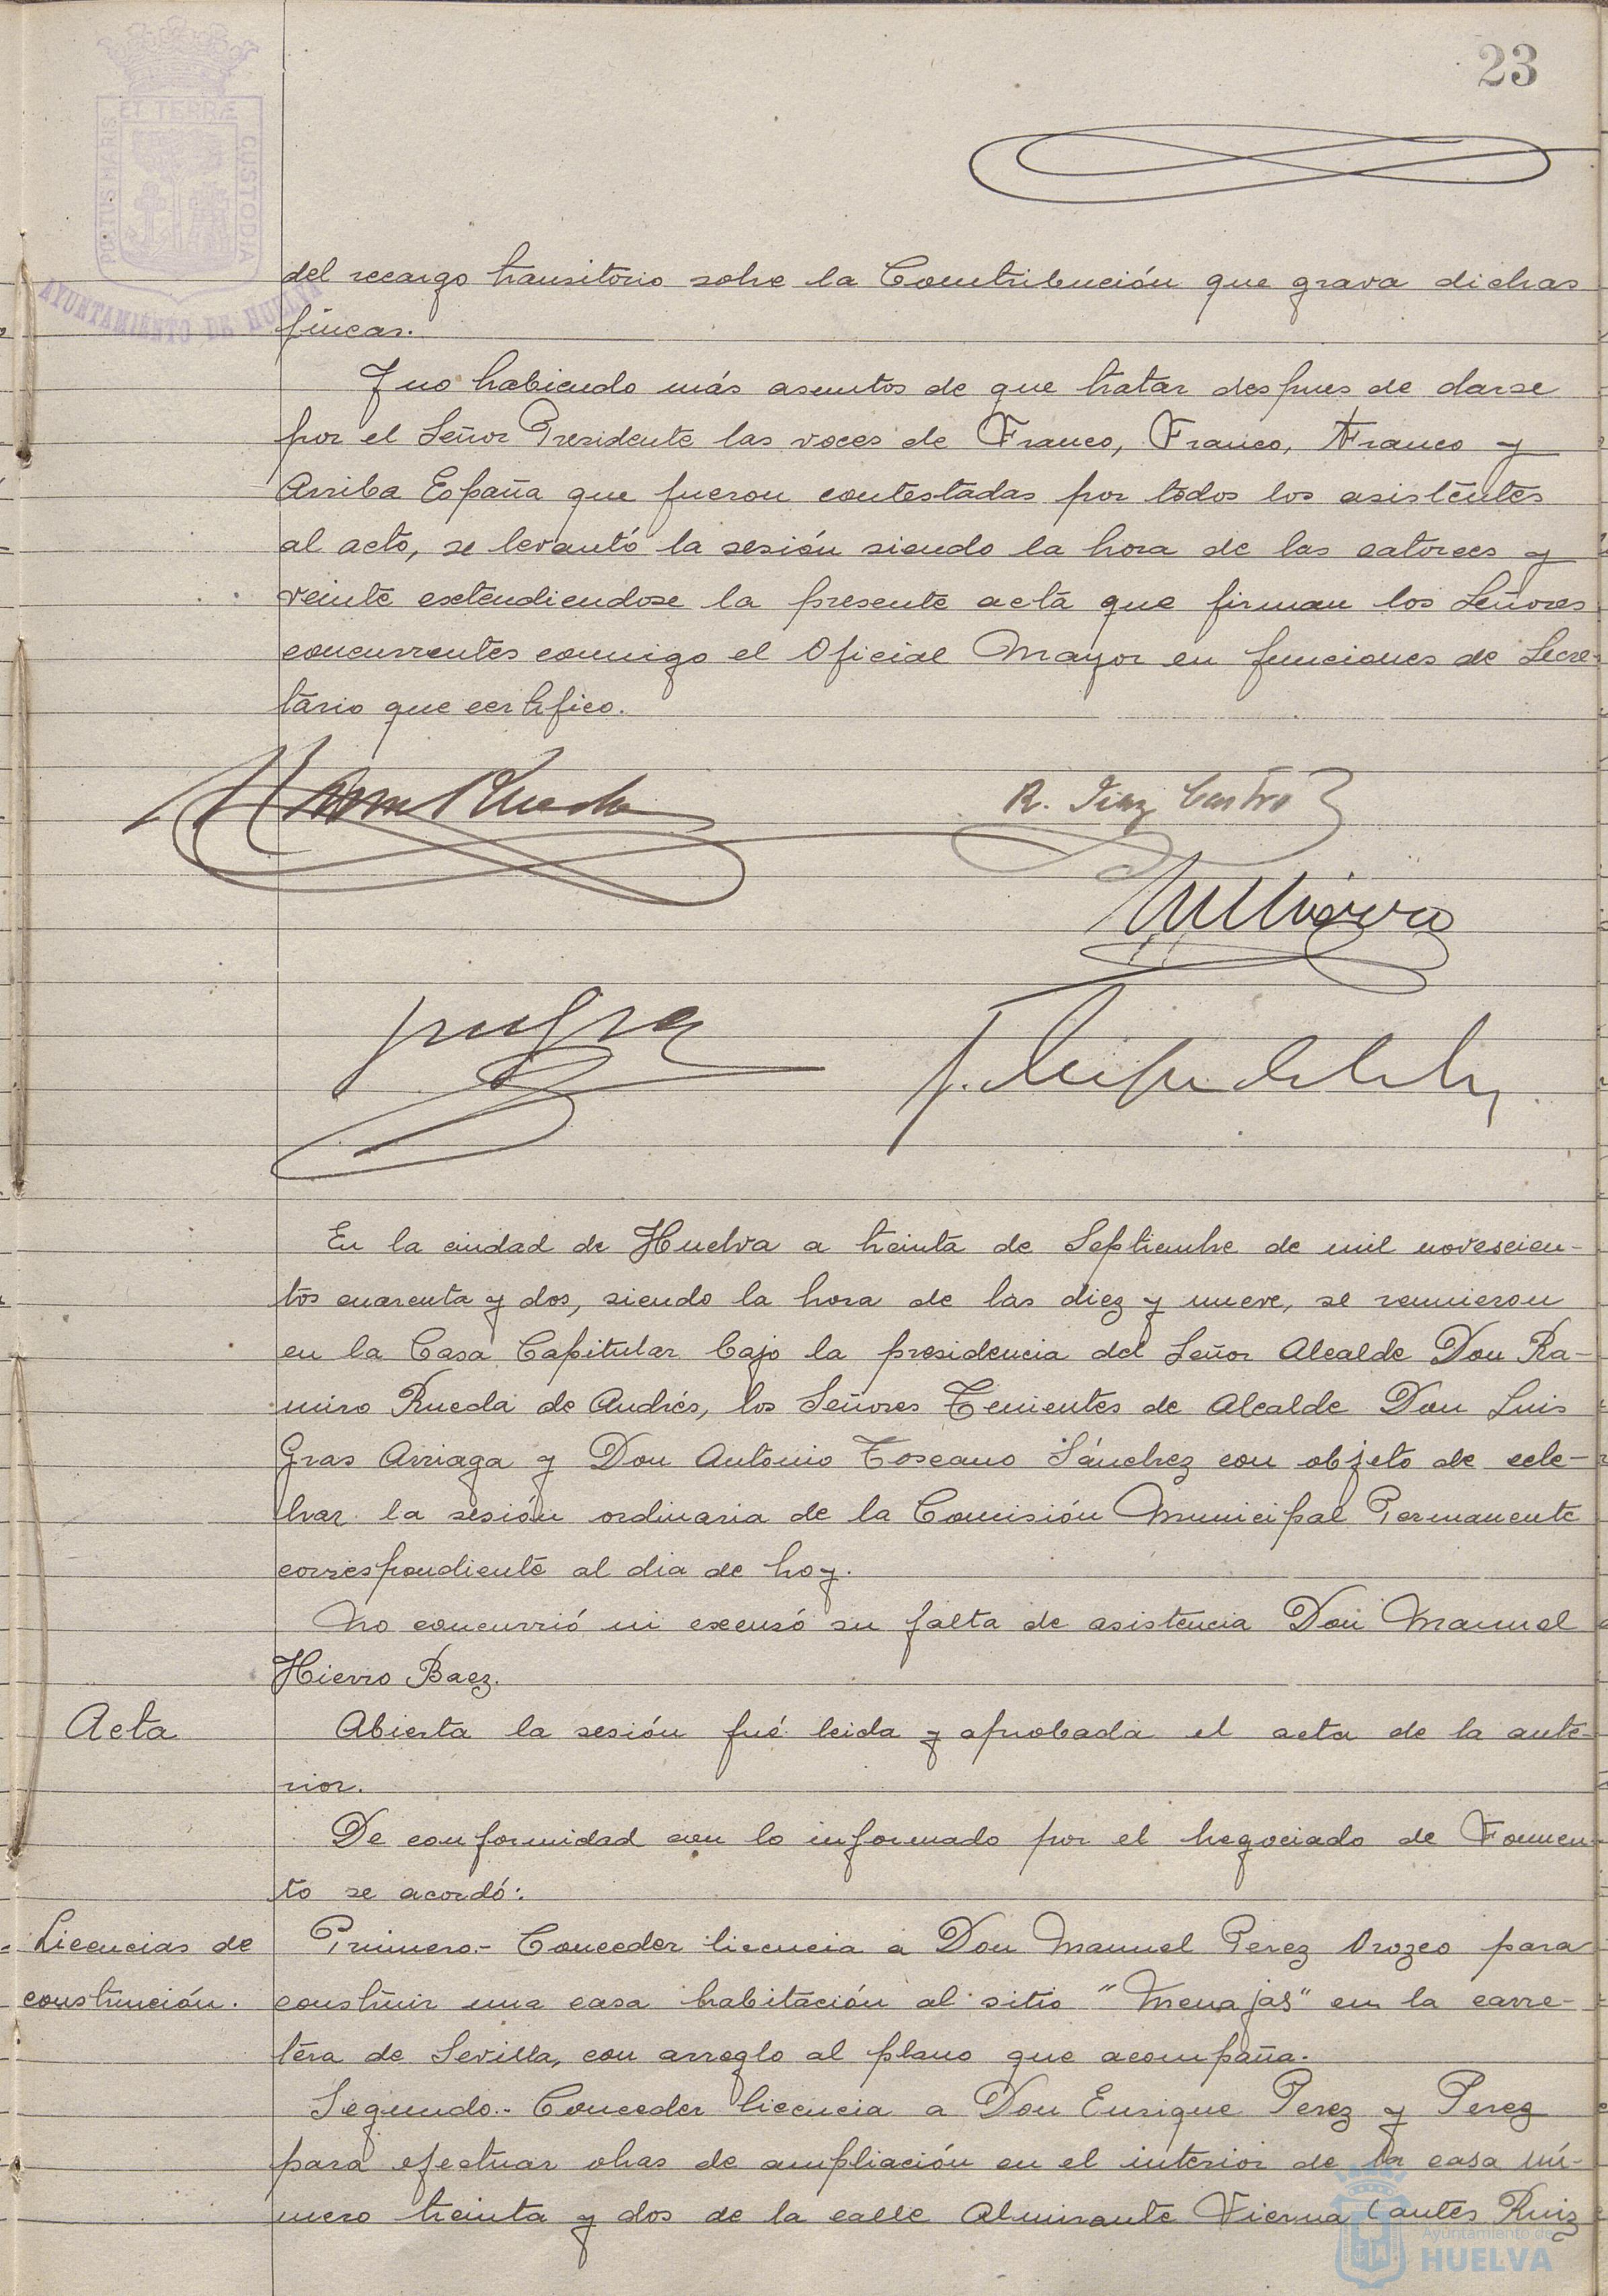 23
PORTUS MARIS
ET TERRÆ
CUSTODIA
AYUNTAMIENTO DE HUELVA
del recargo transitorio sobre la Contribución que grava dichas
fincas.
Y no habiendo más asuntos de que tratar despues de darse
por el Señor Presidente las voces de Franco, Franco, Franco y
Arriba España que fueron contestadas por todos los asistentes
al acto, se levantó la sesión siendo la hora de las catorces y
veinte extendiendose la presente acta que firman los Señores
concurrentes conmigo el Oficial Mayor en funciones de Secre-
tario que certifico.
R. Diaz Castro
En la ciudad de Huelva a treinta de Septiembre de mil novescien-
tos cuarenta y dos, siendo la hora de las diez y nueve, se reunieron
en la Casa Capitular bajo la presidencia del Señor Alcalde Don Ra-
miro Rueda de Andrés, los Señores Tenientes de Alcalde Don Luis
Gras Arriaga y Don Antonio Toscano Sánchez con objeto de cele-
brar la sesión ordinaria de la Comisión Municipal Permanente
correspondiente al dia de hoy.
No concurrió ni excusó su falta de asistencia Don Manuel
Hierro Baez.
Acta
Abierta la sesión fué leida y aprobada el acta de la ante-
rior.
De conformidad con lo informado por el negociado de Fomen-
to se acordó:
Licencias de
construcción.
Primero.- Conceder licencia a Don Manuel Perez Orozco para
construir una casa habitación al sitio "Menajas" en la carre-
tera de Sevilla, con arreglo al plano que acompaña.
Segundo.- Conceder licencia a Don Enrique Perez y Perez
para efectuar obras de ampliación en el interior de la casa nú-
mero treinta y dos de la calle Almirante Vierna (antes Ruiz
Ayuntamiento de
HUELVA